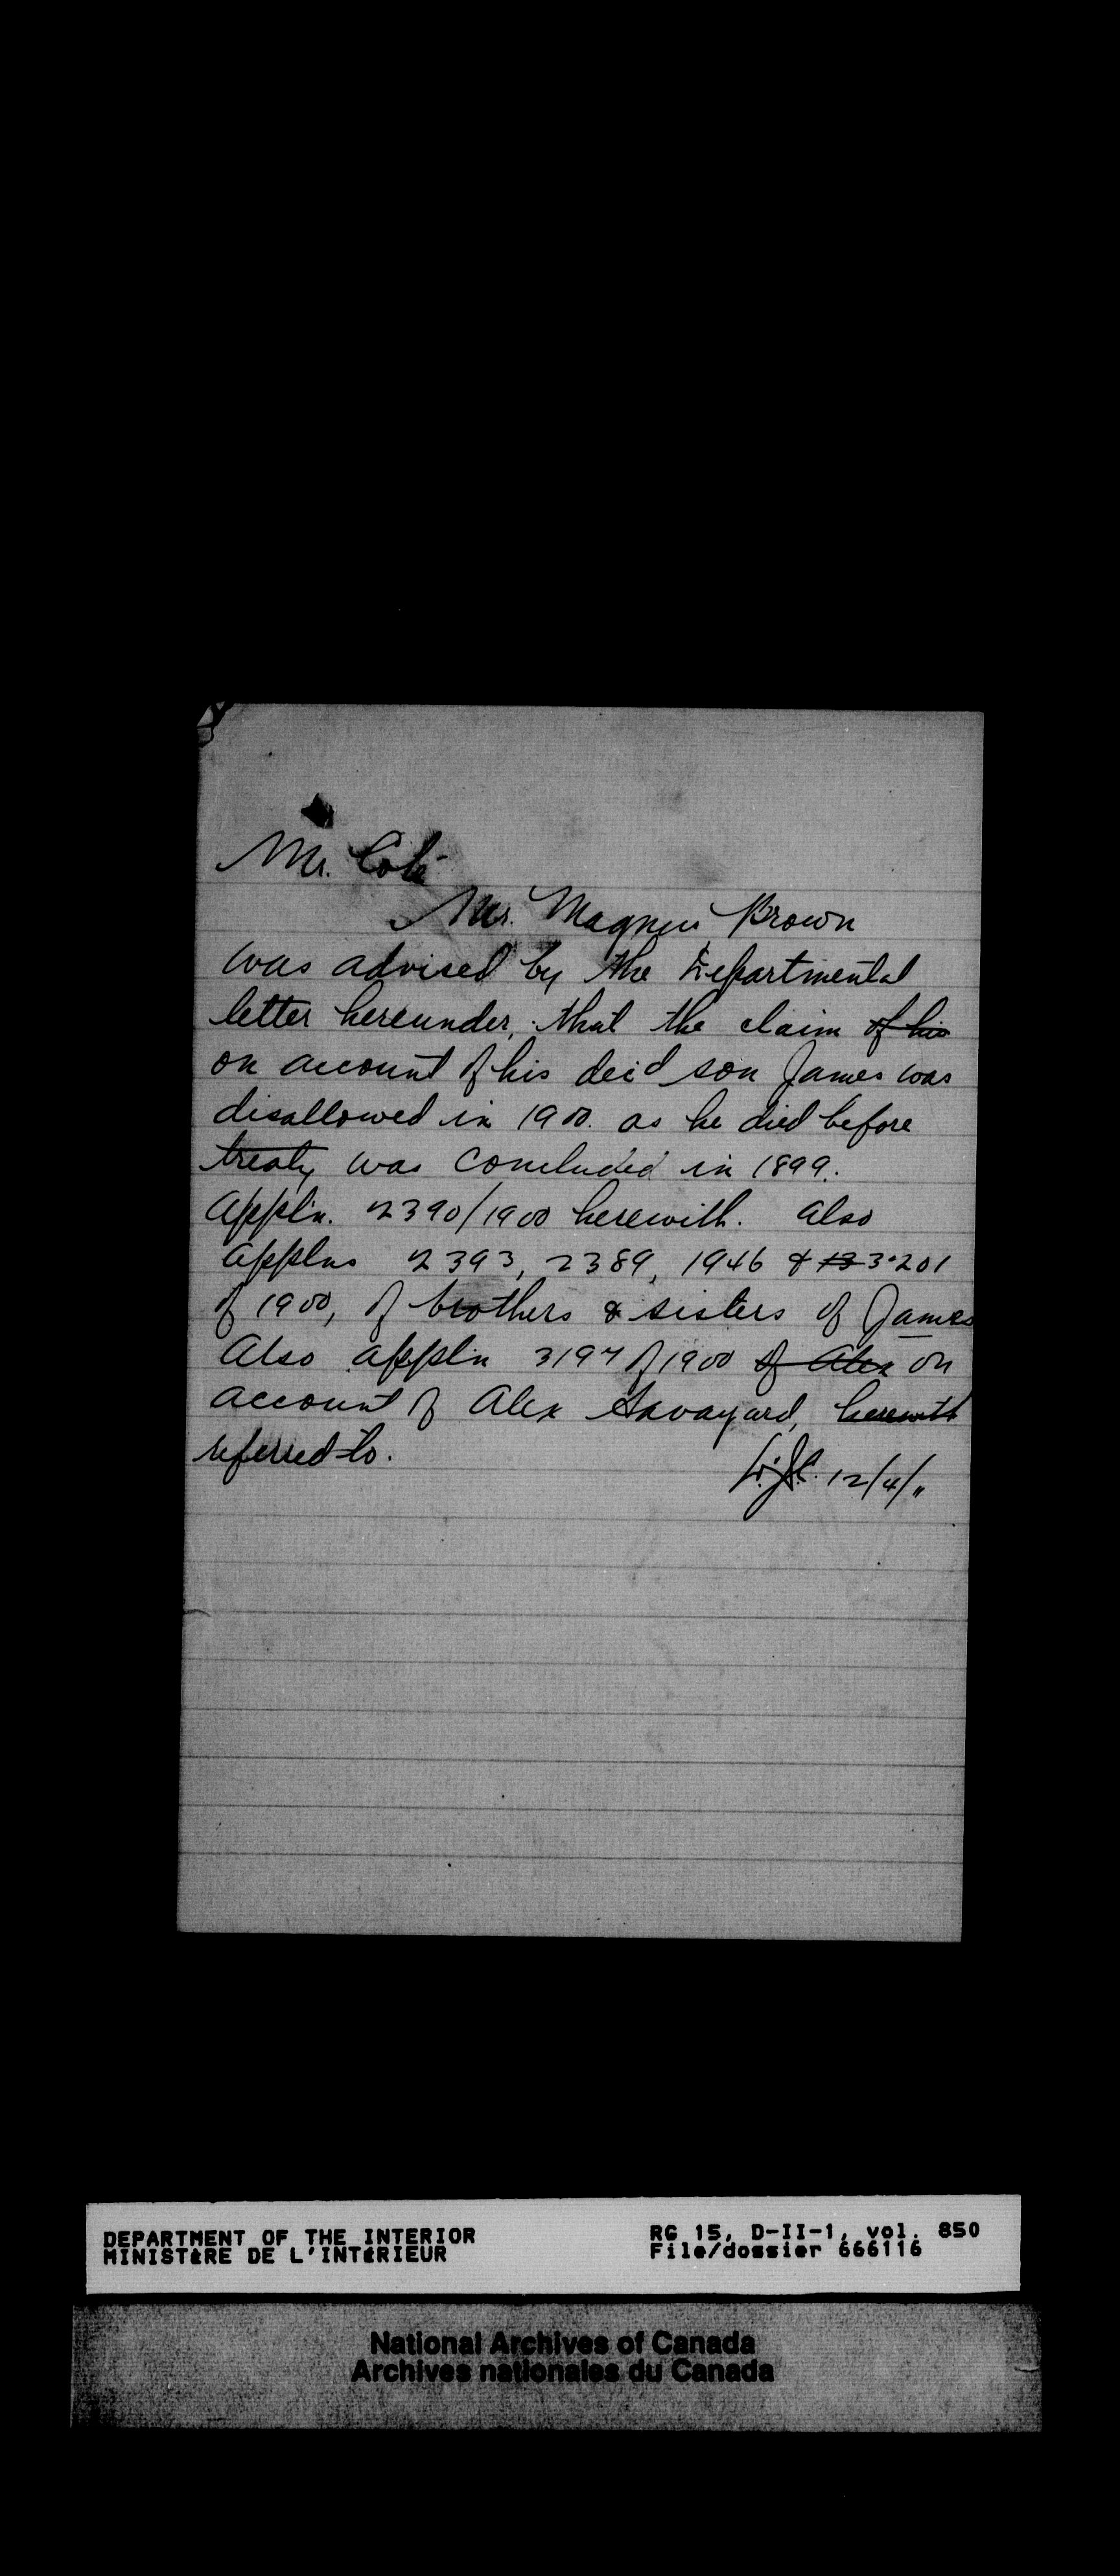 Mr. Coté
Mr. Magnus Brown
was advised by the Departmental
letter hereunder, that the claim of his
on account of his dec'd son James was
disallowed in 1900. as he died before
treaty was concluded in 1899.
Appln. 2390/1900 herewith. Also
applns 2393, 2389, 1946 & 13 3201
of 1900, of brothers & sisters of James
Also appln 3197 of 1900 of Alex on
account of Alex herewith
referred to.
12/4/11
DEPARTMENT OF THE INTERIOR
MINISTÈRE DE L'INTÉRIEUR
RG 15, D-II-1, vol. 850
File/dossier 666116
National Archives of Canada
Archives nationales du Canada